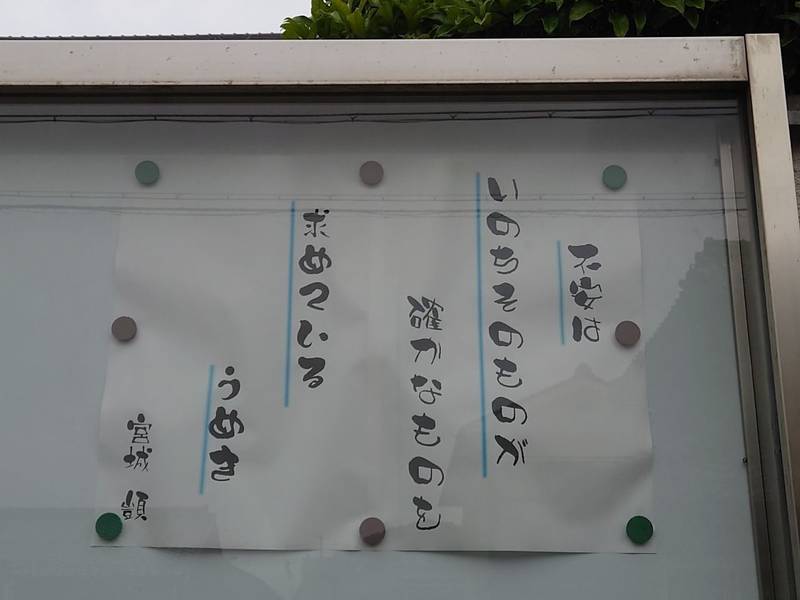 不安は
いのちそのものが
確かなものを
求めている
うめき
宮城 顗